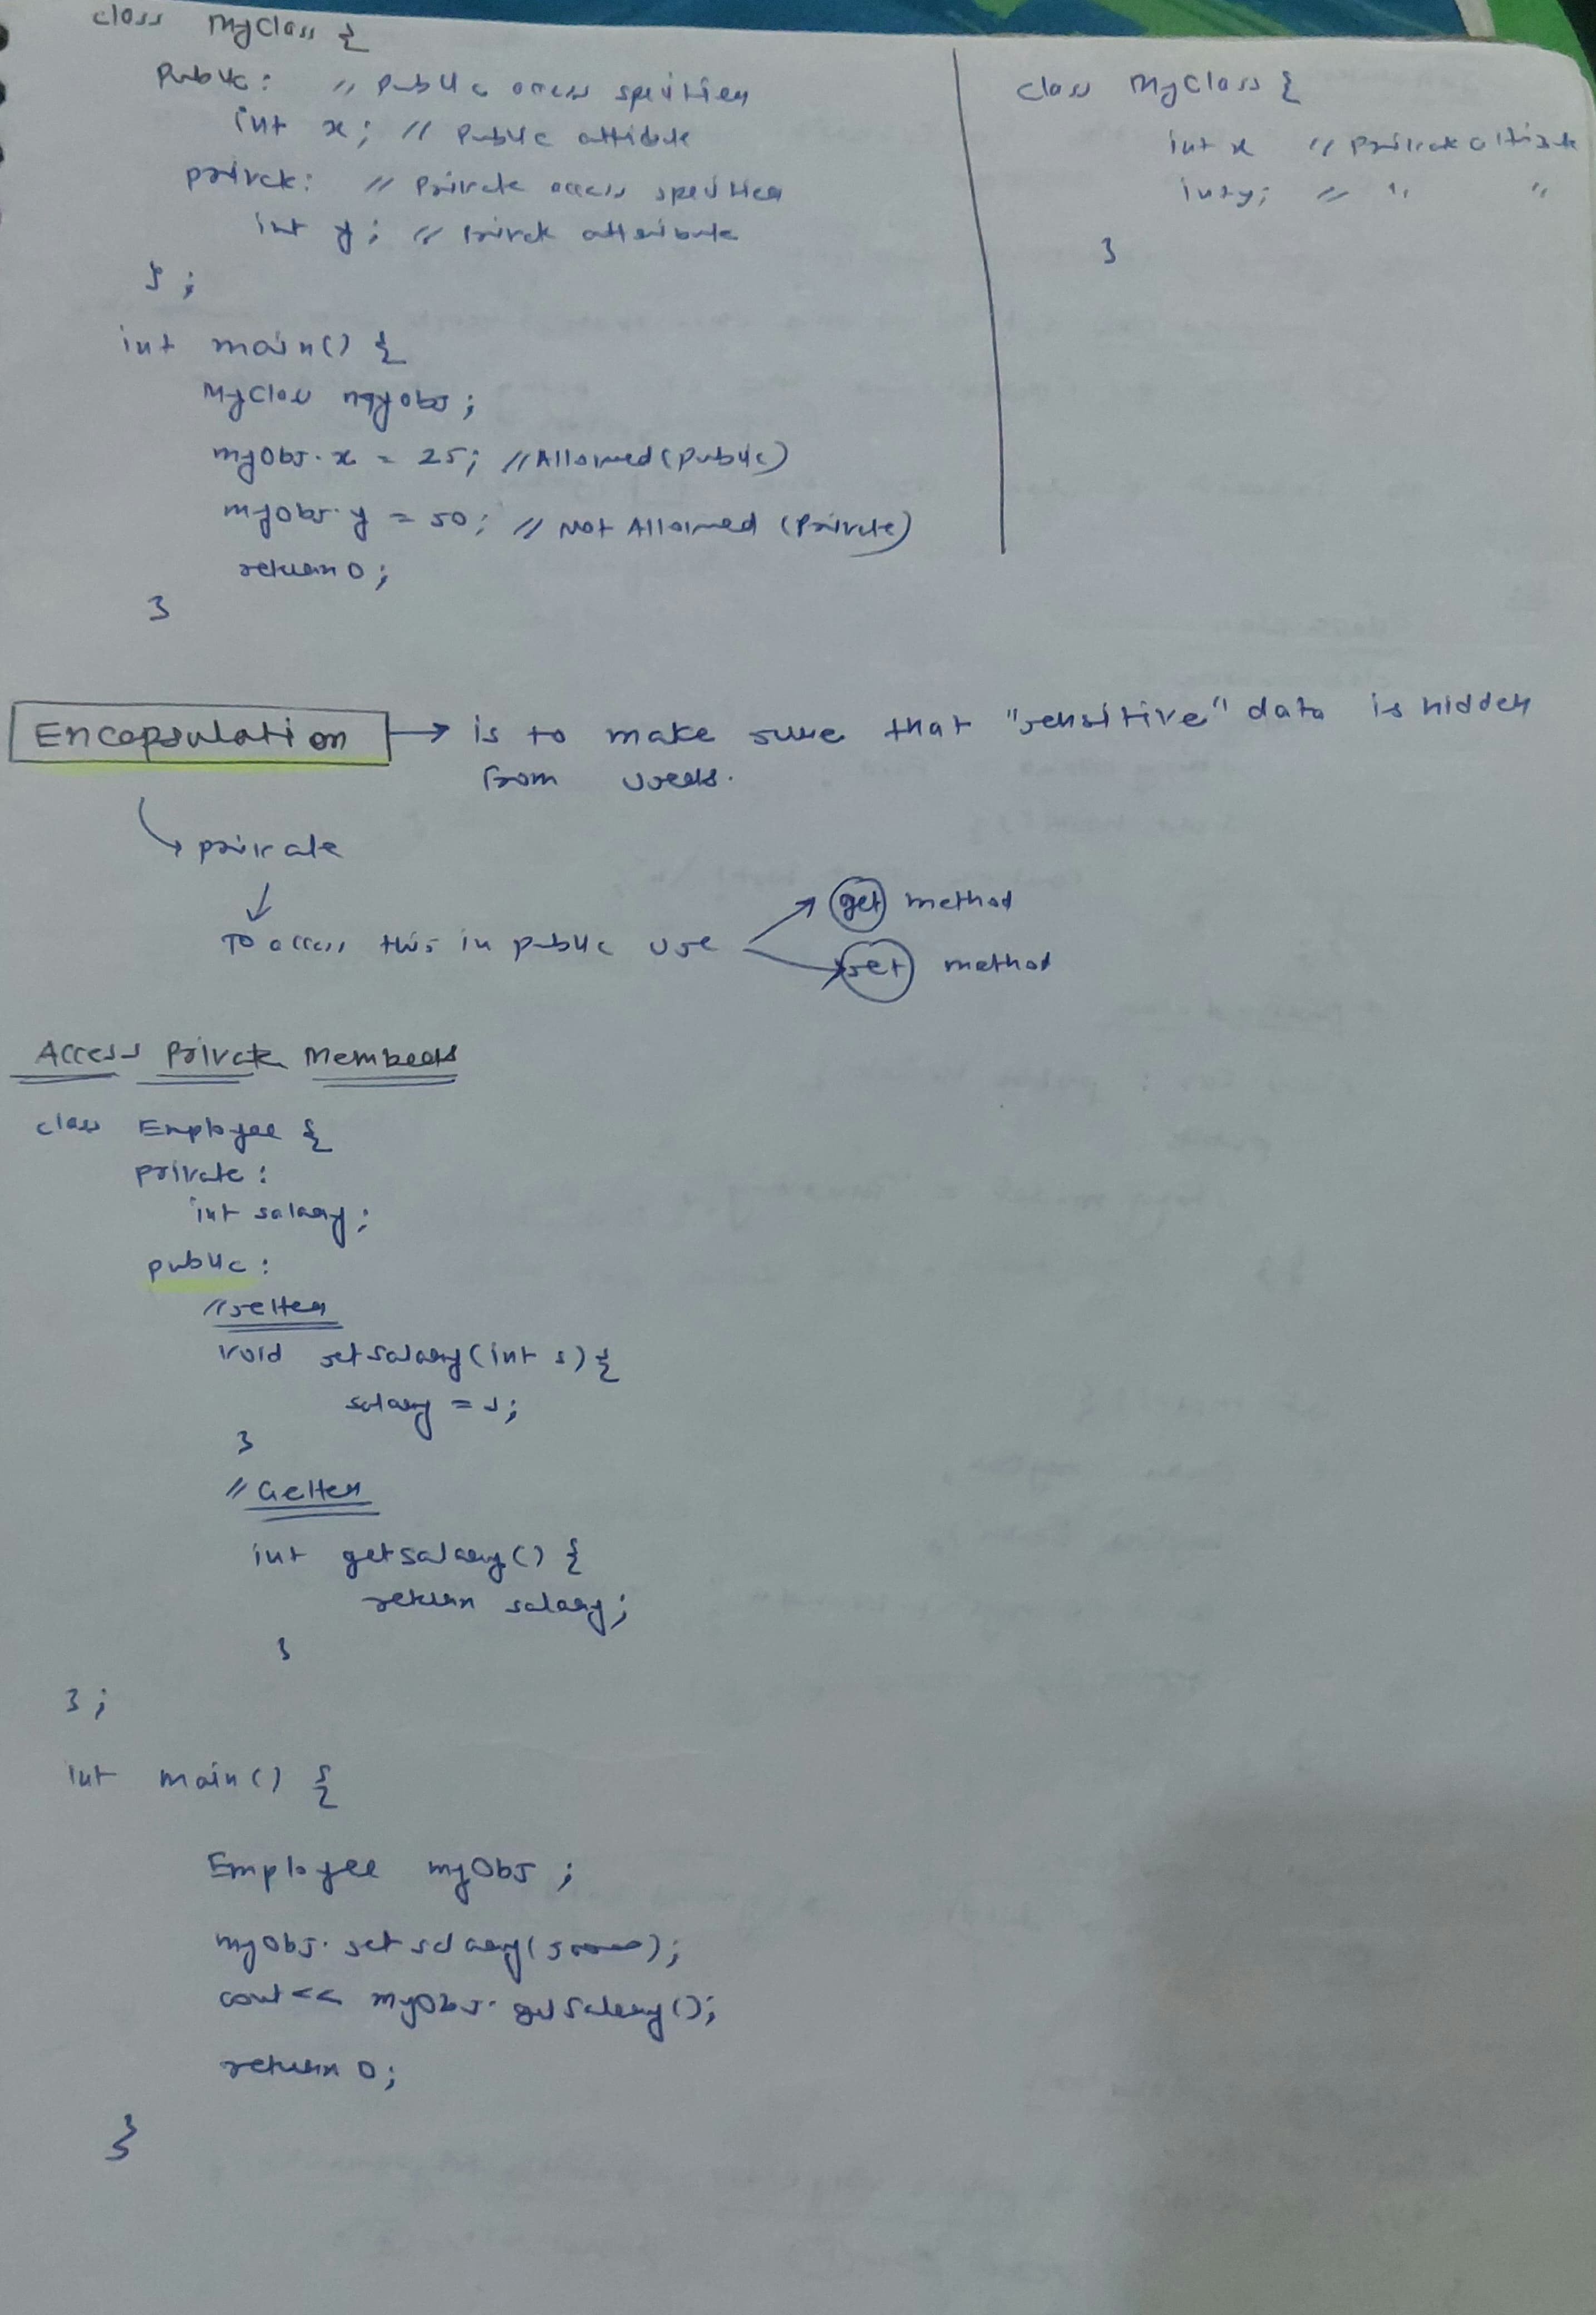 class MyClass {
public: // public access specifier
int x; // Public attribute
private: // Private access specifier
int y; // Private attribute
};
int main() {
MyClass myObj;
myObj.x = 25; // Allowed (public)
myObj.y = 50; // Not Allowed (Private)
return 0;
}
class MyClass {
int x // Private attribute
int y; // " "
}
Encapsulation → is to make sure that "sensitive" data is hidden
from users.
↳ private
↓
To access this in public use → get method
→ set method
Access Private Members
class Employee {
private:
int salary;
public:
// setter
void setSalary(int s) {
salary = s;
}
// Getter
int getSalary() {
return salary;
}
};
int main() {
Employee myObj;
myObj.setSalary(50000);
cout << myObj.getSalary();
return 0;
}